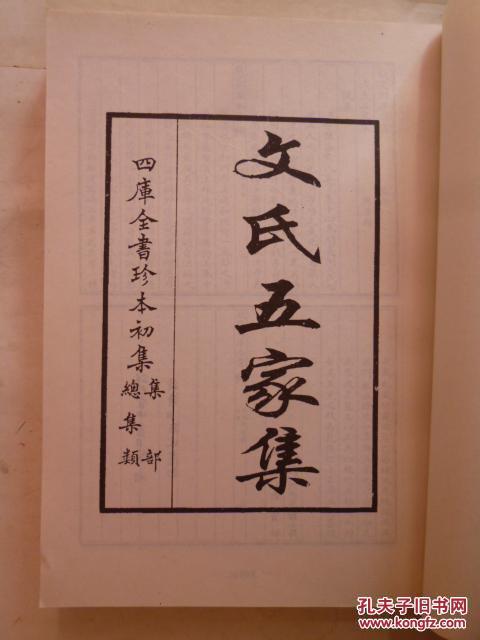 文氏五家集
四庫全書珍本初集
集部
總集類
孔夫子旧书网
www.kongfz.com